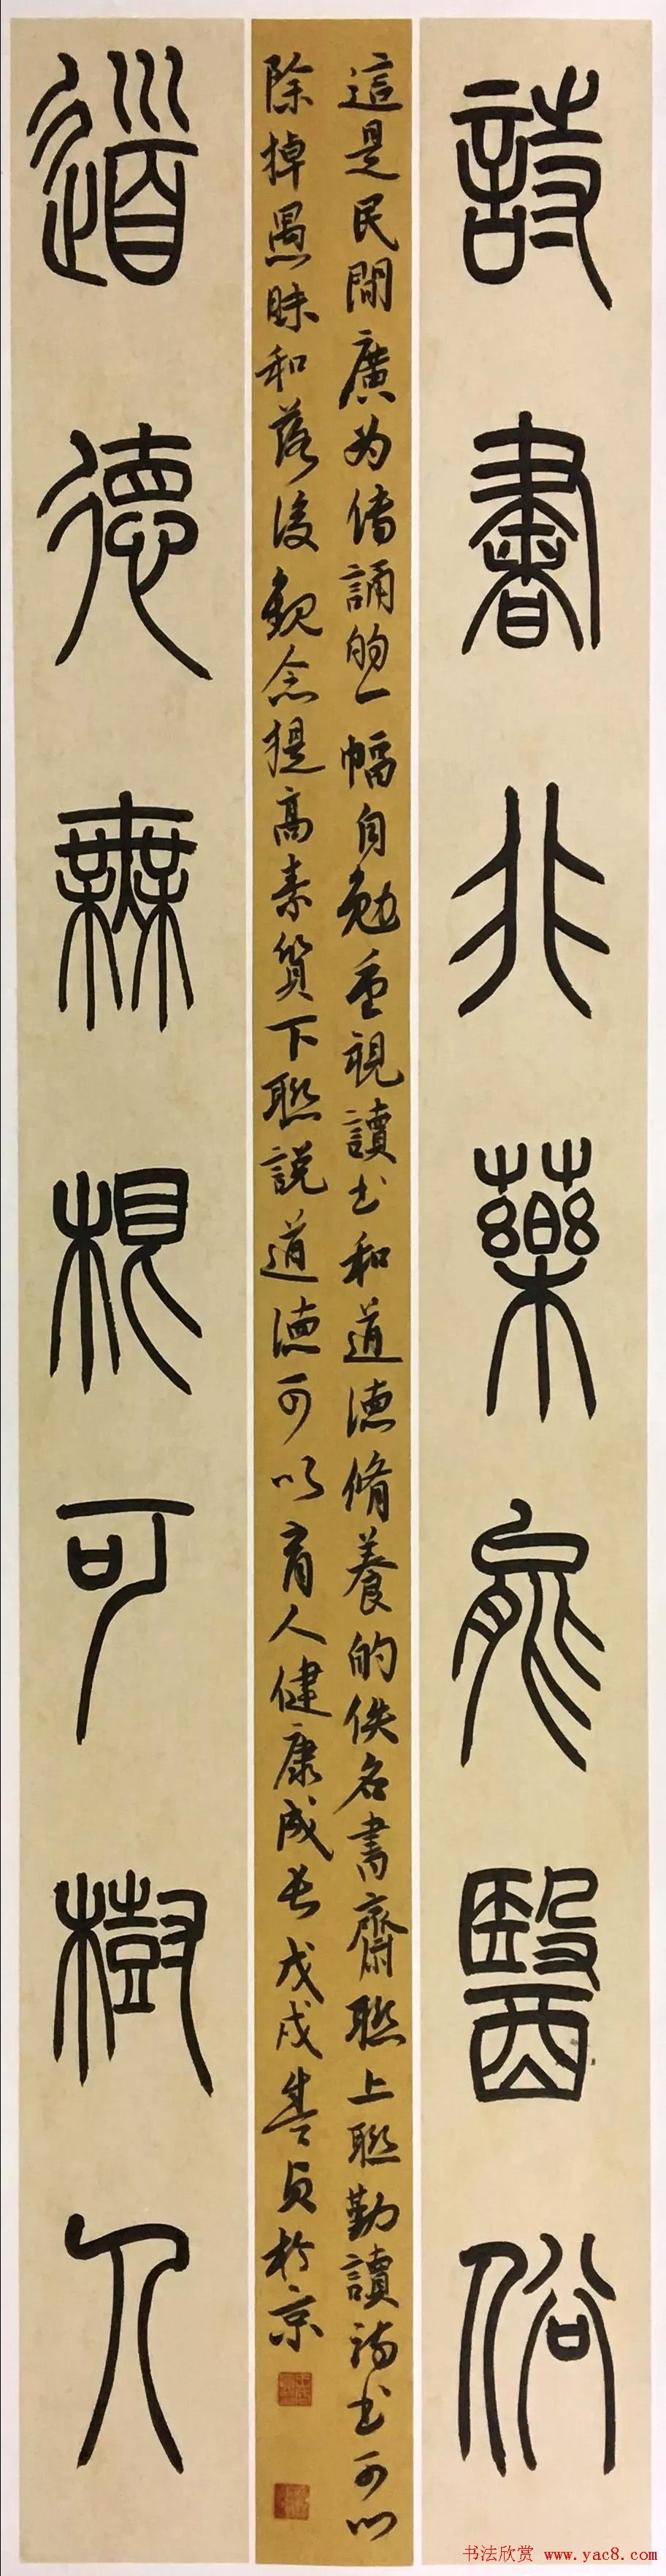 詩書非藥能醫俗
這是民間廣为傳誦的一幅自勉重視讀书和道德脩養的佚名書齋聯上聯勤讀詩书可以
除掉愚昧和落後觀念提高素質下聯說道德可以育人健康成长戊戌善貞於京
道德無根可樹人
书法欣赏 www.yac8.com